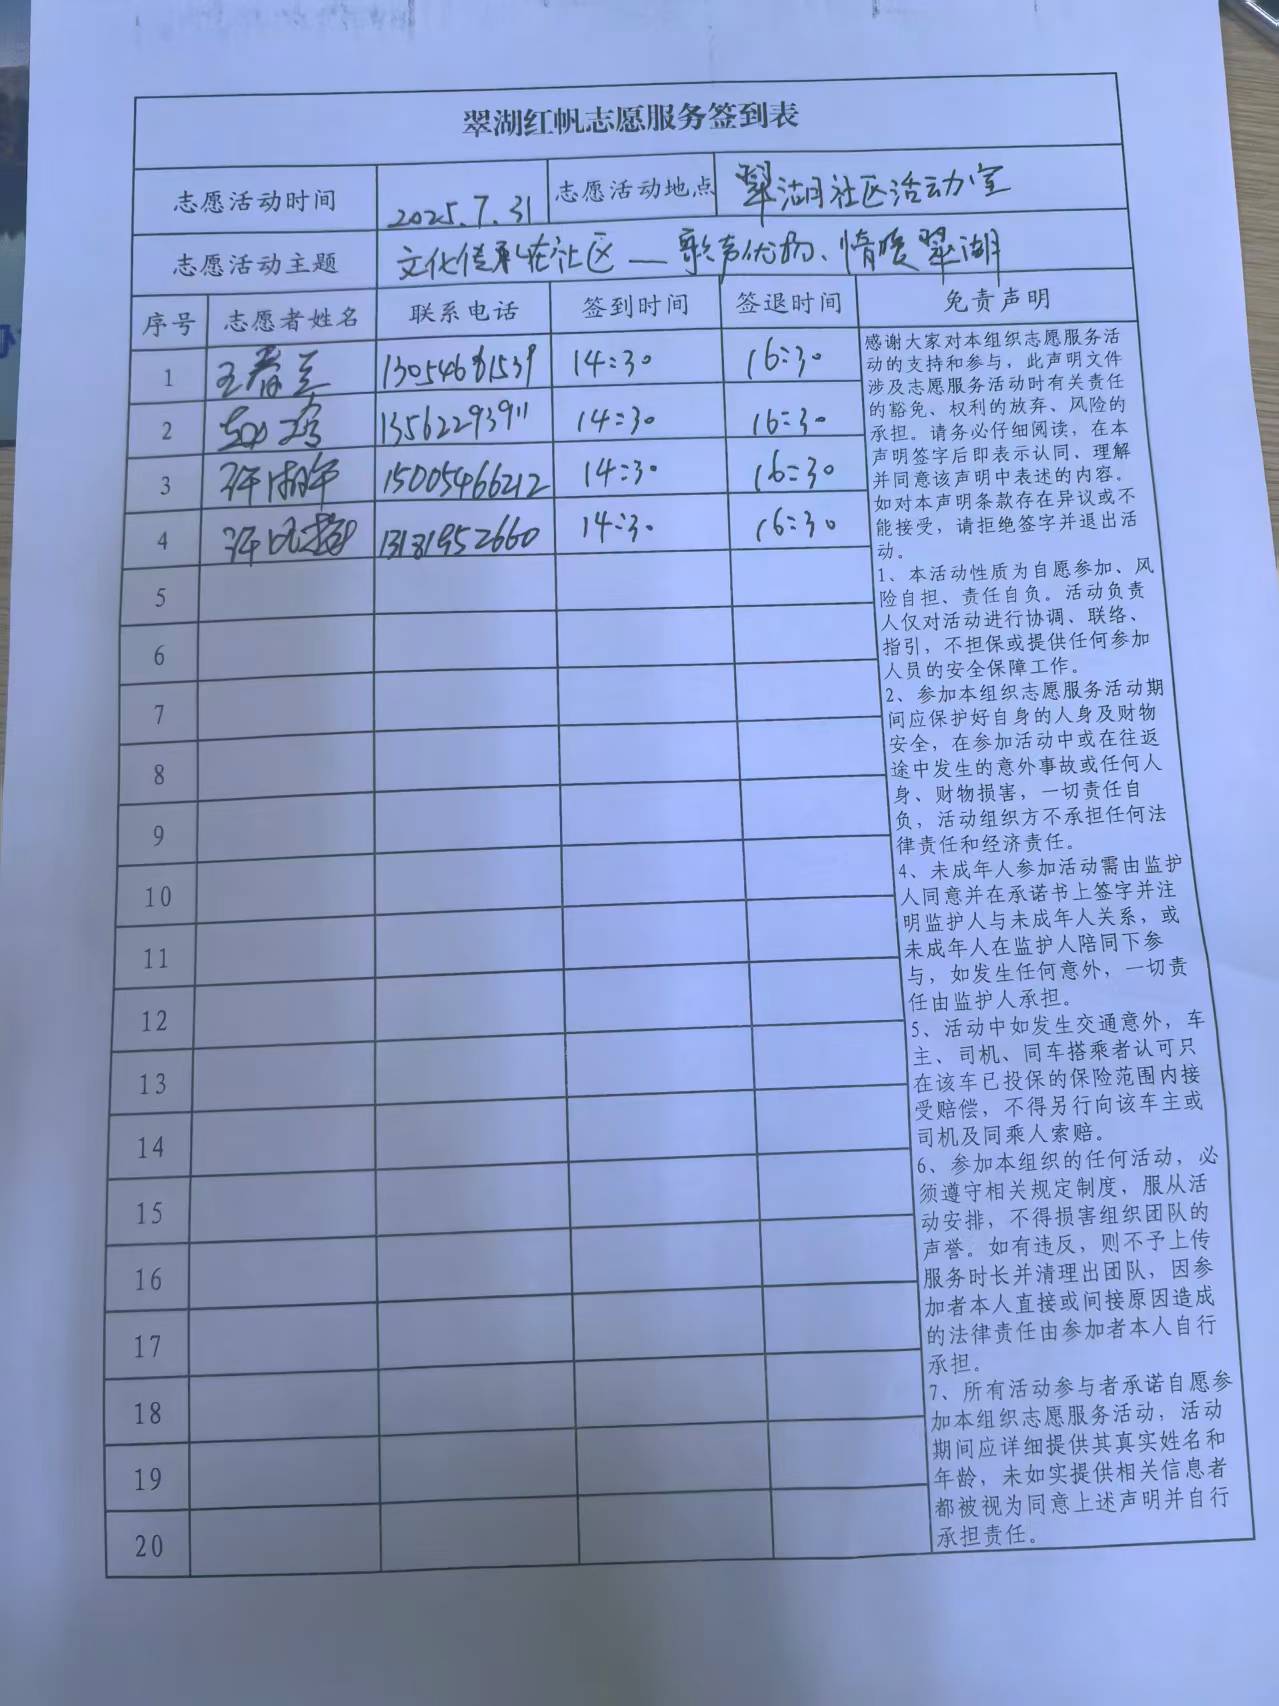 翠湖红帆志愿服务签到表
志愿活动时间 2025.7.31 志愿活动地点 翠湖社区活动室
志愿活动主题 文化传承在社区——歌声优扬、情暖翠湖
序号 志愿者姓名 联系电话 签到时间 签退时间 免责声明
1 王春兰 13054681539 14:30 16:30
2 13562293911 14:30 16:30
3 15005466212 14:30 16:30
4 13181952660 14:30 16:30
5
6
7
8
9
10
11
12
13
14
15
16
17
18
19
20
感谢大家对本组织志愿服务活
动的支持和参与，此声明文件
涉及志愿服务活动时有关责任
的豁免、权利的放弃、风险的
承担。请务必仔细阅读，在本
声明签字后即表示认同、理解
并同意该声明中表述的内容。
如对本声明条款存在异议或不
能接受，请拒绝签字并退出活
动。
1、本活动性质为自愿参加、风
险自担、责任自负。活动负责
人仅对活动进行协调、联络、
指引，不担保或提供任何参加
人员的安全保障工作。
2、参加本组织志愿服务活动期
间应保护好自身的人身及财物
安全，在参加活动中或在往返
途中发生的意外事故或任何人
身、财物损害，一切责任自
负，活动组织方不承担任何法
律责任和经济责任。
4、未成年人参加活动需由监护
人同意并在承诺书上签字并注
明监护人与未成年人关系，或
未成年人在监护人陪同下参
与，如发生任何意外，一切责
任由监护人承担。
5、活动中如发生交通意外，车
主、司机、同车搭乘者认可只
在该车已投保的保险范围内接
受赔偿，不得另行向该车主或
司机及同乘人索赔。
6、参加本组织的任何活动，必
须遵守相关规定制度，服从活
动安排，不得损害组织团队的
声誉。如有违反，则不予上传
服务时长并清理出团队，因参
加者本人直接或间接原因造成
的法律责任由参加者本人自行
承担。
7、所有活动参与者承诺自愿参
加本组织志愿服务活动，活动
期间应详细提供其真实姓名和
年龄，未如实提供相关信息者
都被视为同意上述声明并自行
承担责任。